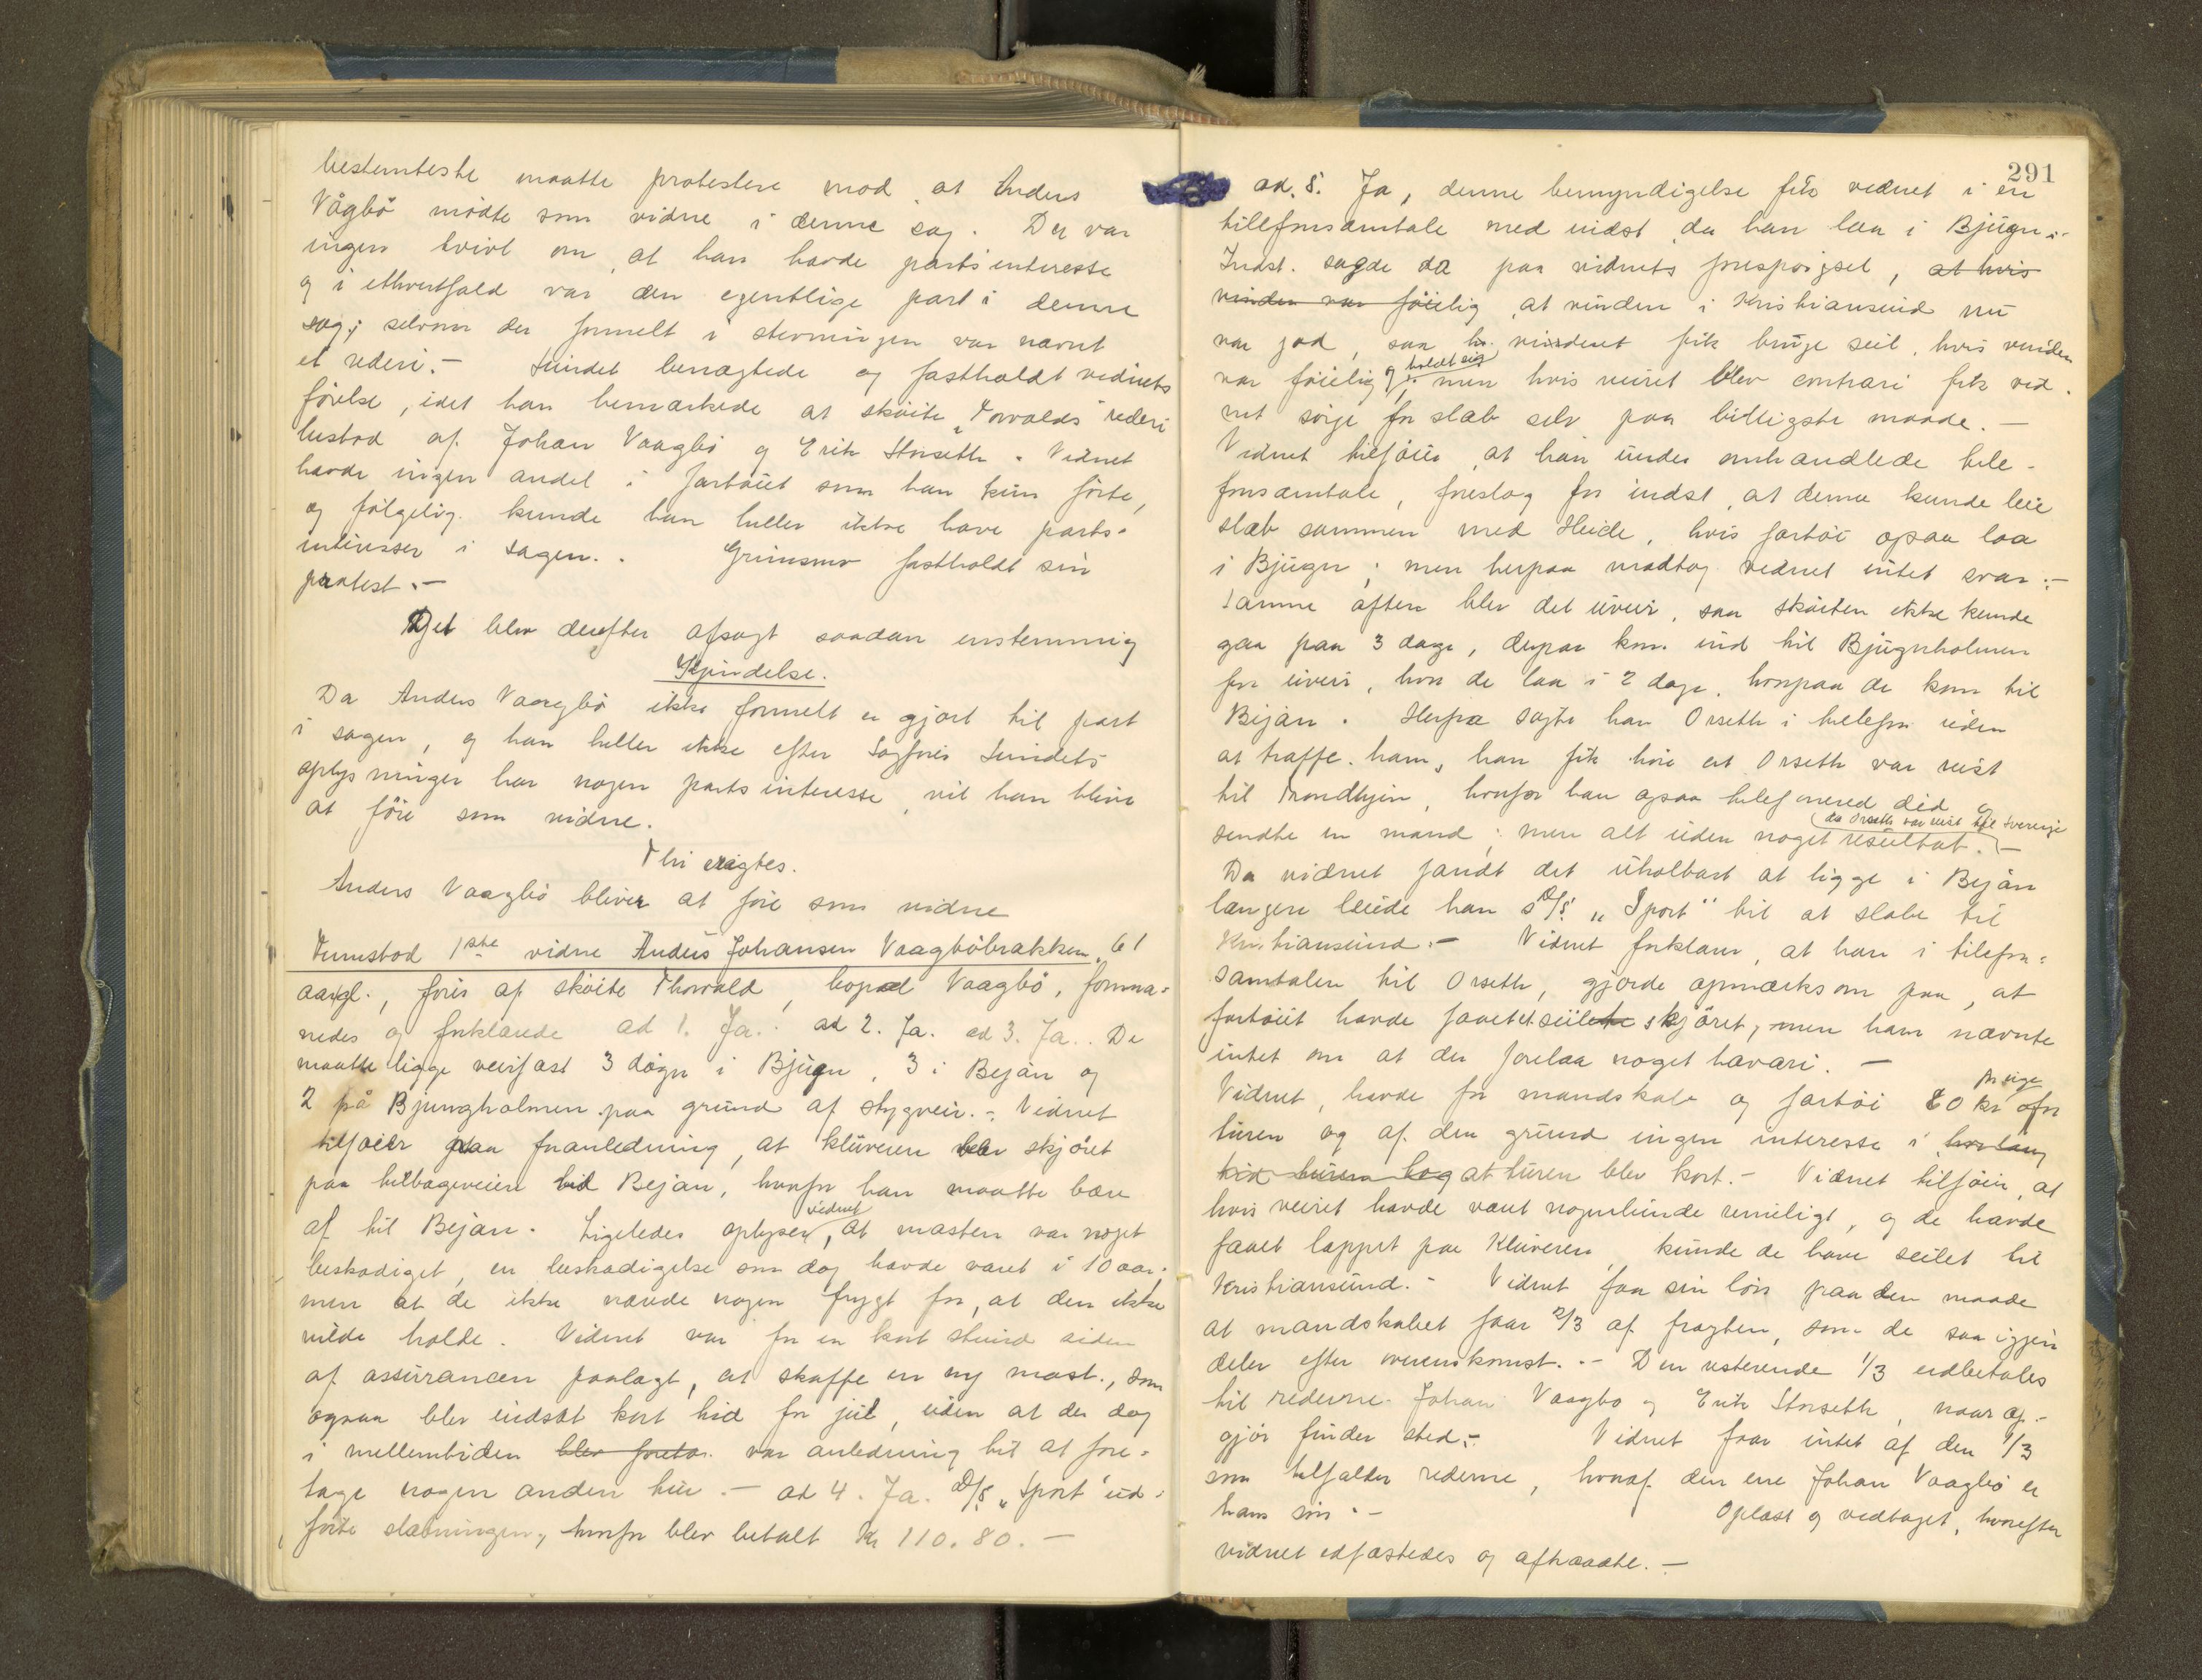 bestemteste maatte protestere mod at Anders
Vågbö mödte som vidne i denne sag. Der var
ingen tvivl om at han havde partsinteresse
og i ethvertfald var den egentlige part i denne
sag; selvom der formelt i stevningen var nævnt
et rederi. - Sundet benægtede og fastholdt vidnets
förelse, idet han bemærkede at sköite "Torvalds" rederi
bestod af Johan Vaagbö og Erik Storseth. Vidnet
havde ingen andel i fartöiet som han kun förte,
og fölgelig kunde han heller ikke have parts-
interesser i sagen. . Grimsmo fastholdt sin
protest. -
Det blev derefter afsagt saadan enstemmig
Kjendelse.
Da Anders Vaagbö ikke formelt er gjort til part
i sagen, og han heller ikke efter Sagförer Sundets
oplysninger har nogen partsinteresse, vil han blive
at före som vidne.
Thi eragtes.
Anders Vaagbö bliver at före som vidne
Fremstod 1ste vidne Anders Johansen Vaagböbrakken, 61
aargl., förer af sköite Thorvald, bopæl Vaagbö, forma-
nedes og forklarede ad 1. Ja. ad 2. Ja. ad 3. Ja. . De
maatte ligge veirfast 3 dögn i Bjugn, 3 i Bejan og
2 på Bjungholmen paa grund af stygveir. - Vidnet
tilföier paa foranledning, at klüveren blev skjöret
paa tilbageveien vid Bejan, hvorfor han maatte bære
af til Bejan. Ligeledes oplyser vidnet, at masten var noget
beskadiget, en beskadigelse som dog havde været i 10 aar.
men at de ikke nærede nogen frygt for, at den ikke
vilde holde. Vidnet var for en kort stund siden
af assurancen paalagt, at skaffe en ny mast., som
ogsaa blev indsat kort tid for jul, uden at der dog
i mellemtiden blev foreta. var anledning til at fore-
tage nogen anden tur. - ad 4. Ja. D/S. "Sport" ud-
förte slæbningen, hvorfor blev betalt Kr 110.80. -
291
ad. 5. Ja, denne bemyndigelse fik vidnet i en
tillefonsamtale med indst da han laa i Bjugn.
Indst. sagde da paa vidnets forespörgsel, at hvis
vinden var föielig at vinden i Kristiansund nu
var god, saa vidnet fik bruge seil, hvis vinden
var föielig og holdt sig; men hvis veiret blev contrari fik vid-
net sörge for slæb selv paa billigste maade. -
Vidnet tilföier, at han under omhandlede tele-
fonsamtale, foreslog for indst, at denne kunde leie
slæb sammen med Heide, hvis fartöi ogsaa laa
i Bjugn; men herpaa modtog vidnet intet svar. -
Samme aften blev det uveir, saa sköiten ikke kunde
gaa paa 3 dage, derpaa kom ind til Bjugnholmen
for uveir, hvor de laa i 2 dage, hvorpaa de kom til
Bejan. Herfra sögte han Orseth i telefon uden
at træffe ham, han fik höre at Orseth var reist
til Trondhjem, hvorfor han ogsaa telefonered did og
sendte en mand; men alt uden noget resultat. - (da Orseth var reist til Sverige
Da vidnet fandt det uholbart at ligge i Bejan
længere leiede han D/S. "Sport" til at slæbe til
Kristiansund. - Vidnet forklarer, at han i telefon-
samtalen til Orseth, gjorde opmærksom paa, at
fartöiet havde faaet seilene skjöret, men han nævnte
intet om at der forelaa noget havari. -
Vidnet, havde for mandskab og fartöi 80 kr pr uge for
turen og af den grund ingen interesse i hvorlang
tid turen tog at turen blev kort. - Vidnet tilföier, at
hvis veiret havde været nogenlunde rimeligt, og de havde
faaet lappet paa Klüveren, kunde de have seilet til
Kristiansund. - Vidnet faar sin lön paa den maade
at mandskabet faar 2/3 af fragten, som de saa igjen
deler efter overenskomst. - Den resterende 1/3 udbetales
til rederne Johan Vaagbo og Erik Storseth, naar op-
gjör finder sted. - Vidnet faar intet af den 1/3
som tilfalder rederne, hvoraf den ene Johan Vaagbö er
hans sön. - Oplæst og vedtaget, hvorefter
vidnet edfæstedes og aftraadte. -